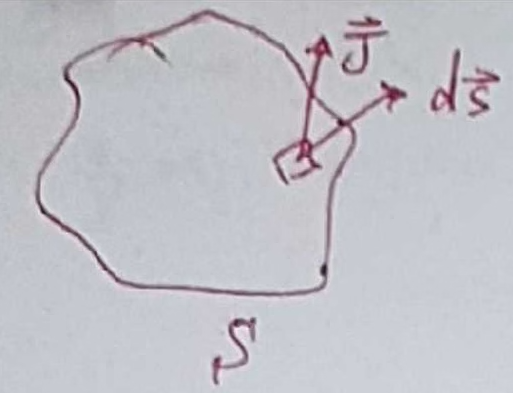 J⃗
ds⃗
S